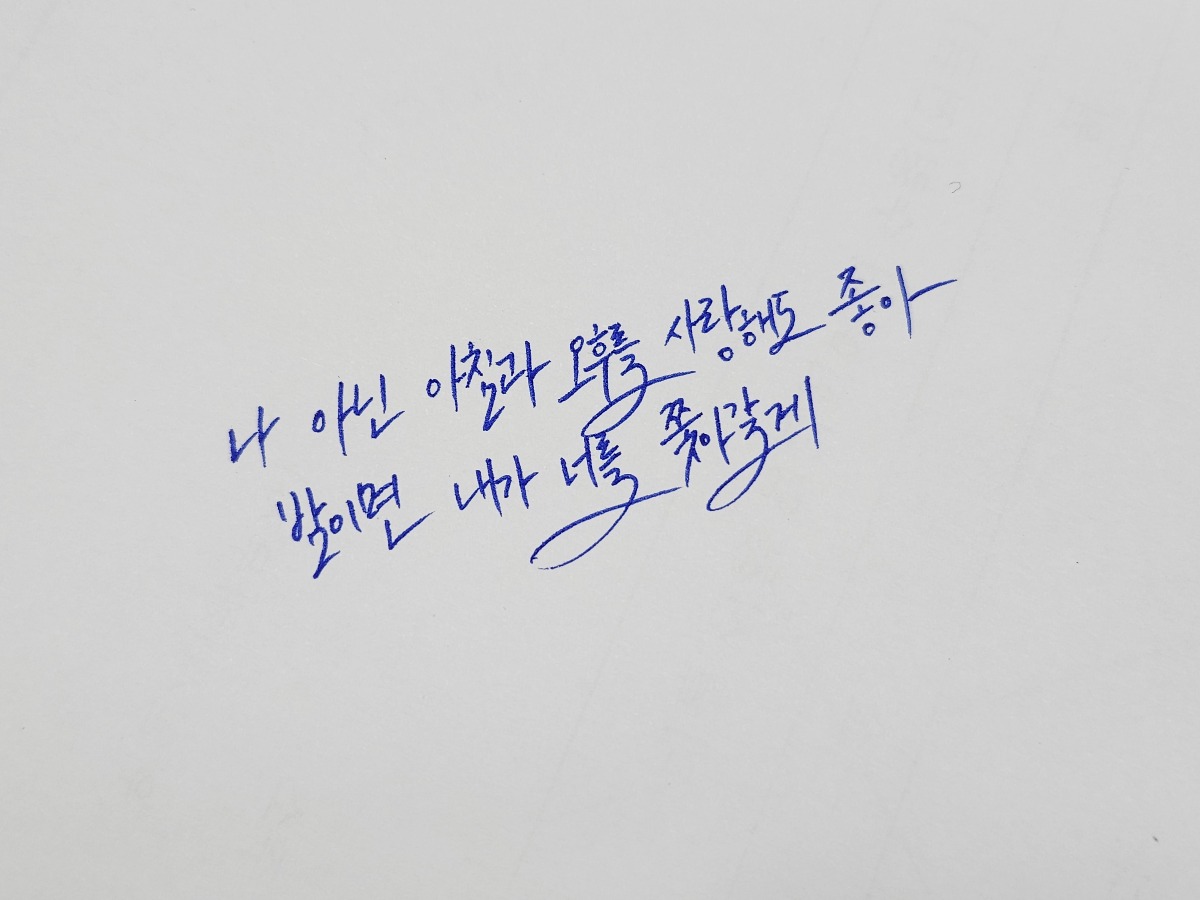 나 아닌 아침과 오후를 사랑해도 좋아
밤이면 내가 너를 쫓아갈게